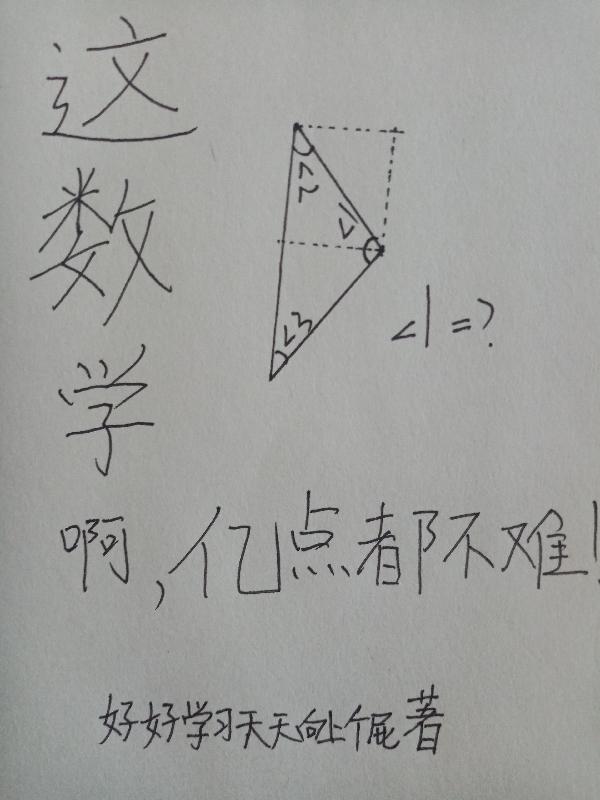 这
数
学
∠2
∠1
∠3
∠1=?
啊,亿点都不难!
好好学习天天向上个屁著